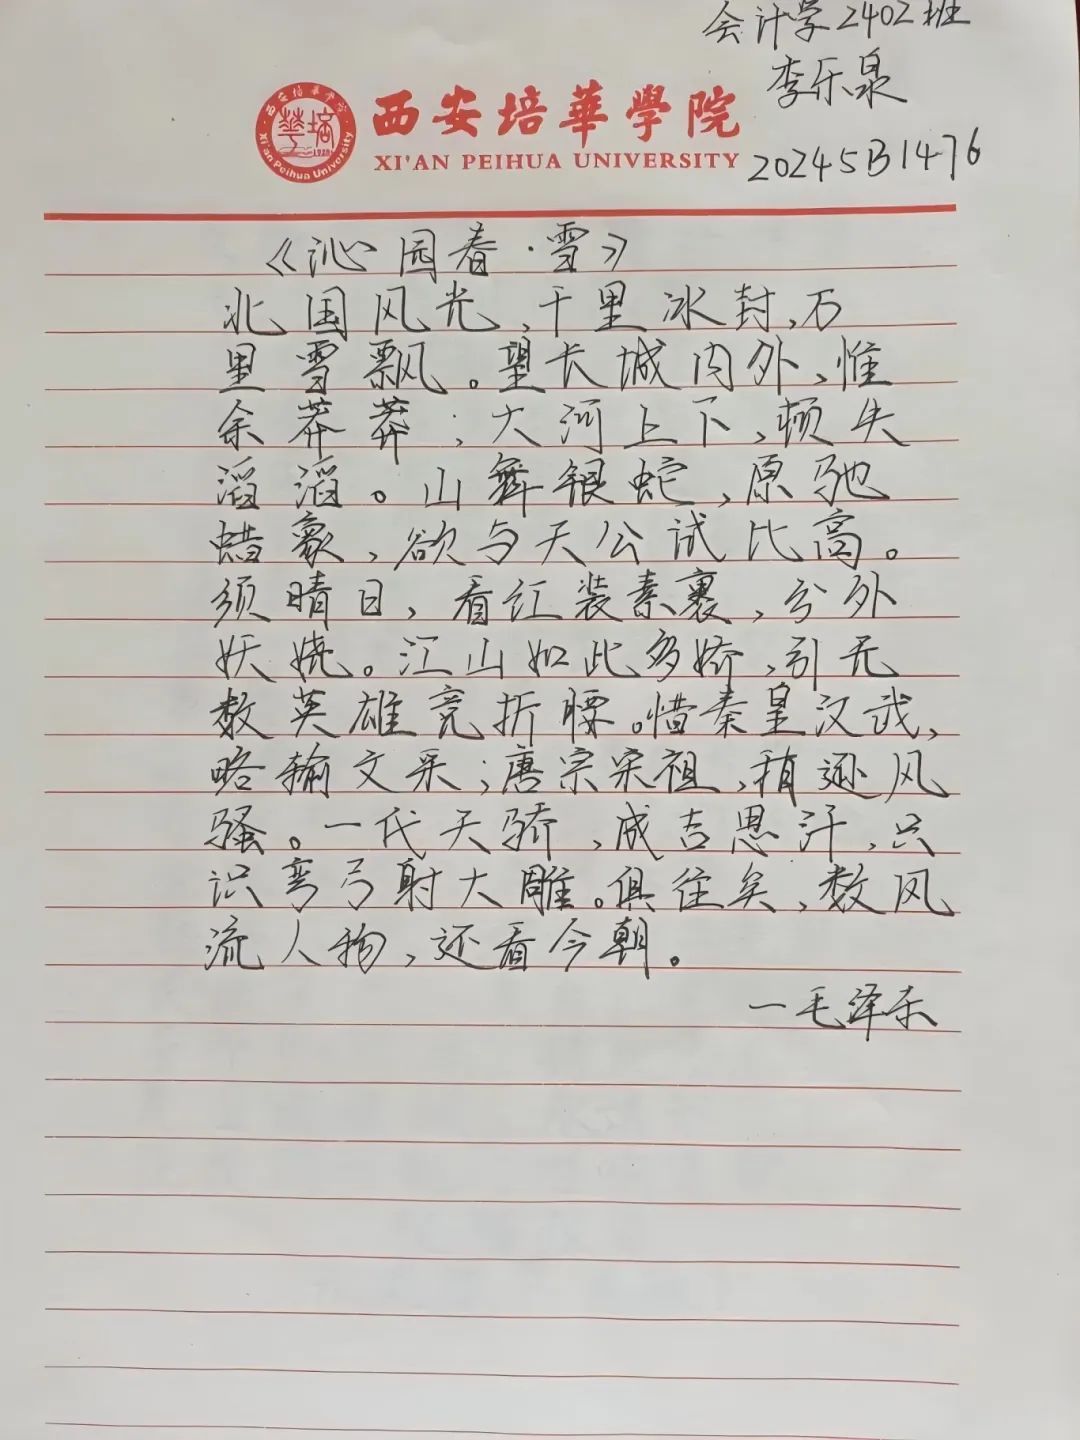 会计学2402班
李乐泉
20245B1476
西安培華學院
XI'AN PEIHUA UNIVERSITY
西安培華学院
Xi'an Peihua University
1928
《沁园春·雪》
北国风光,千里冰封,万
里雪飘。望长城内外,惟
余莽莽;大河上下,顿失
滔滔。山舞银蛇,原驰
蜡象,欲与天公试比高。
须晴日,看红装素裹,分外
妖娆。江山如此多娇,引无
数英雄竞折腰。惜秦皇汉武,
略输文采;唐宗宋祖,稍逊风
骚。一代天骄,成吉思汗,只
识弯弓射大雕。俱往矣,数风
流人物,还看今朝。
一毛泽东